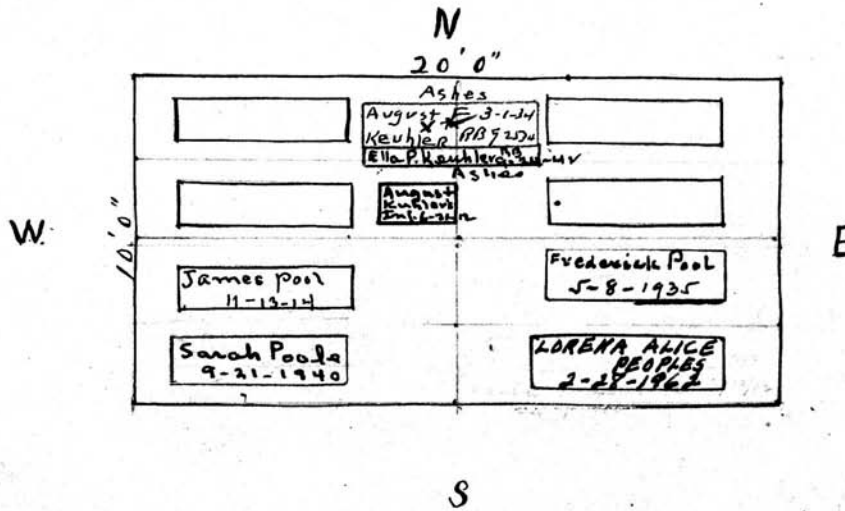 N
20'0"
Ashes
August E 3-1-34
Keuhler RB92574
Ella P. Keuhler
Ashes
August
Kuhlers
Inf.
W.
10'0"
E
James Pool
11-13-14
Frederick Pool
5-8-1935
Sarah Poole
9-21-1940
LORENA ALICE
PEOPLES
2-28-1962
S